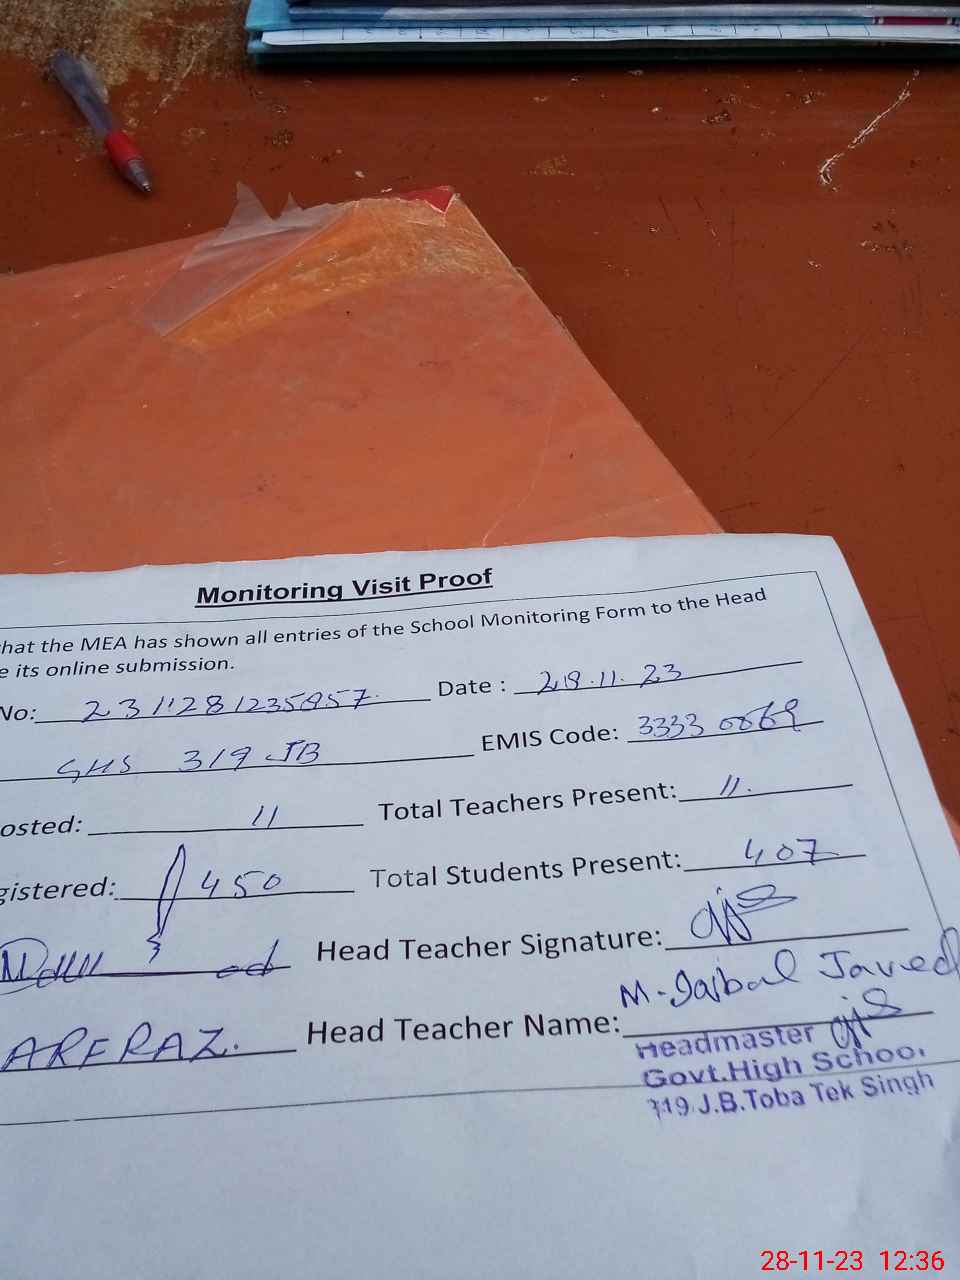 Monitoring Visit Proof
that the MEA has shown all entries of the School Monitoring Form to the Head
e its online submission.
No: 2311281235857 Date : 28.11.23
GHS 319 JB EMIS Code: 33330069
osted: 11 Total Teachers Present: 11.
gistered: 450 Total Students Present: 407
Head Teacher Signature:
ARFRAZ. Head Teacher Name: M-Iqbal Javed
Headmaster
Govt.High School
319.J.B.Toba Tek Singh
28-11-23 12:36